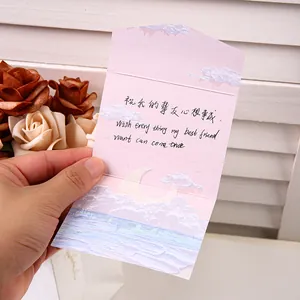 祝我的挚友心想事成.
Wish every thing my best friend
want can come true